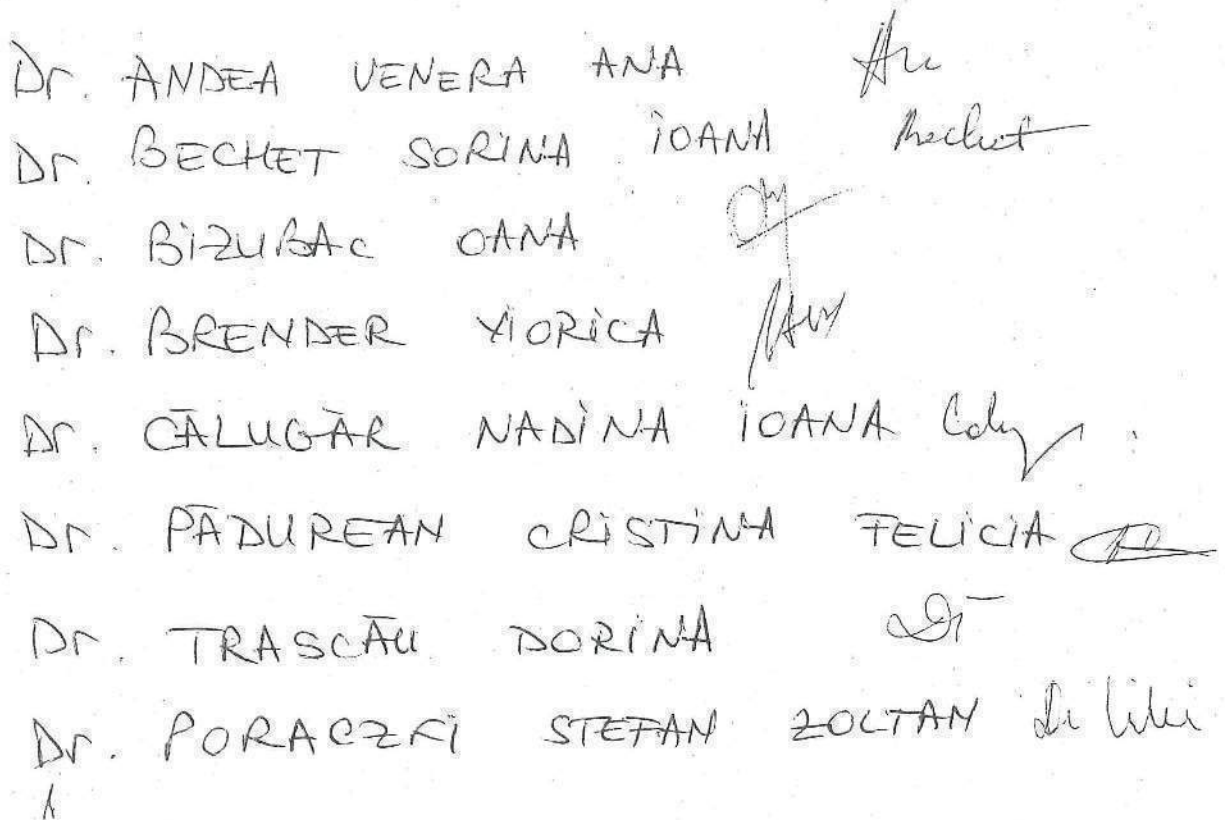 Dr. ANDEA VENERA ANA
Dr. BECHET SORINA IOANA Bechet
Dr. BIZUBAC OANA
Dr. BRENDER VIORICA
Dr. CĂLUGĂR NADINA IOANA
Dr. PĂDUREAN CRISTINA FELICIA
Dr. TRASCĂU DORINA
Dr. PORACZKI STEFAN ZOLTAN